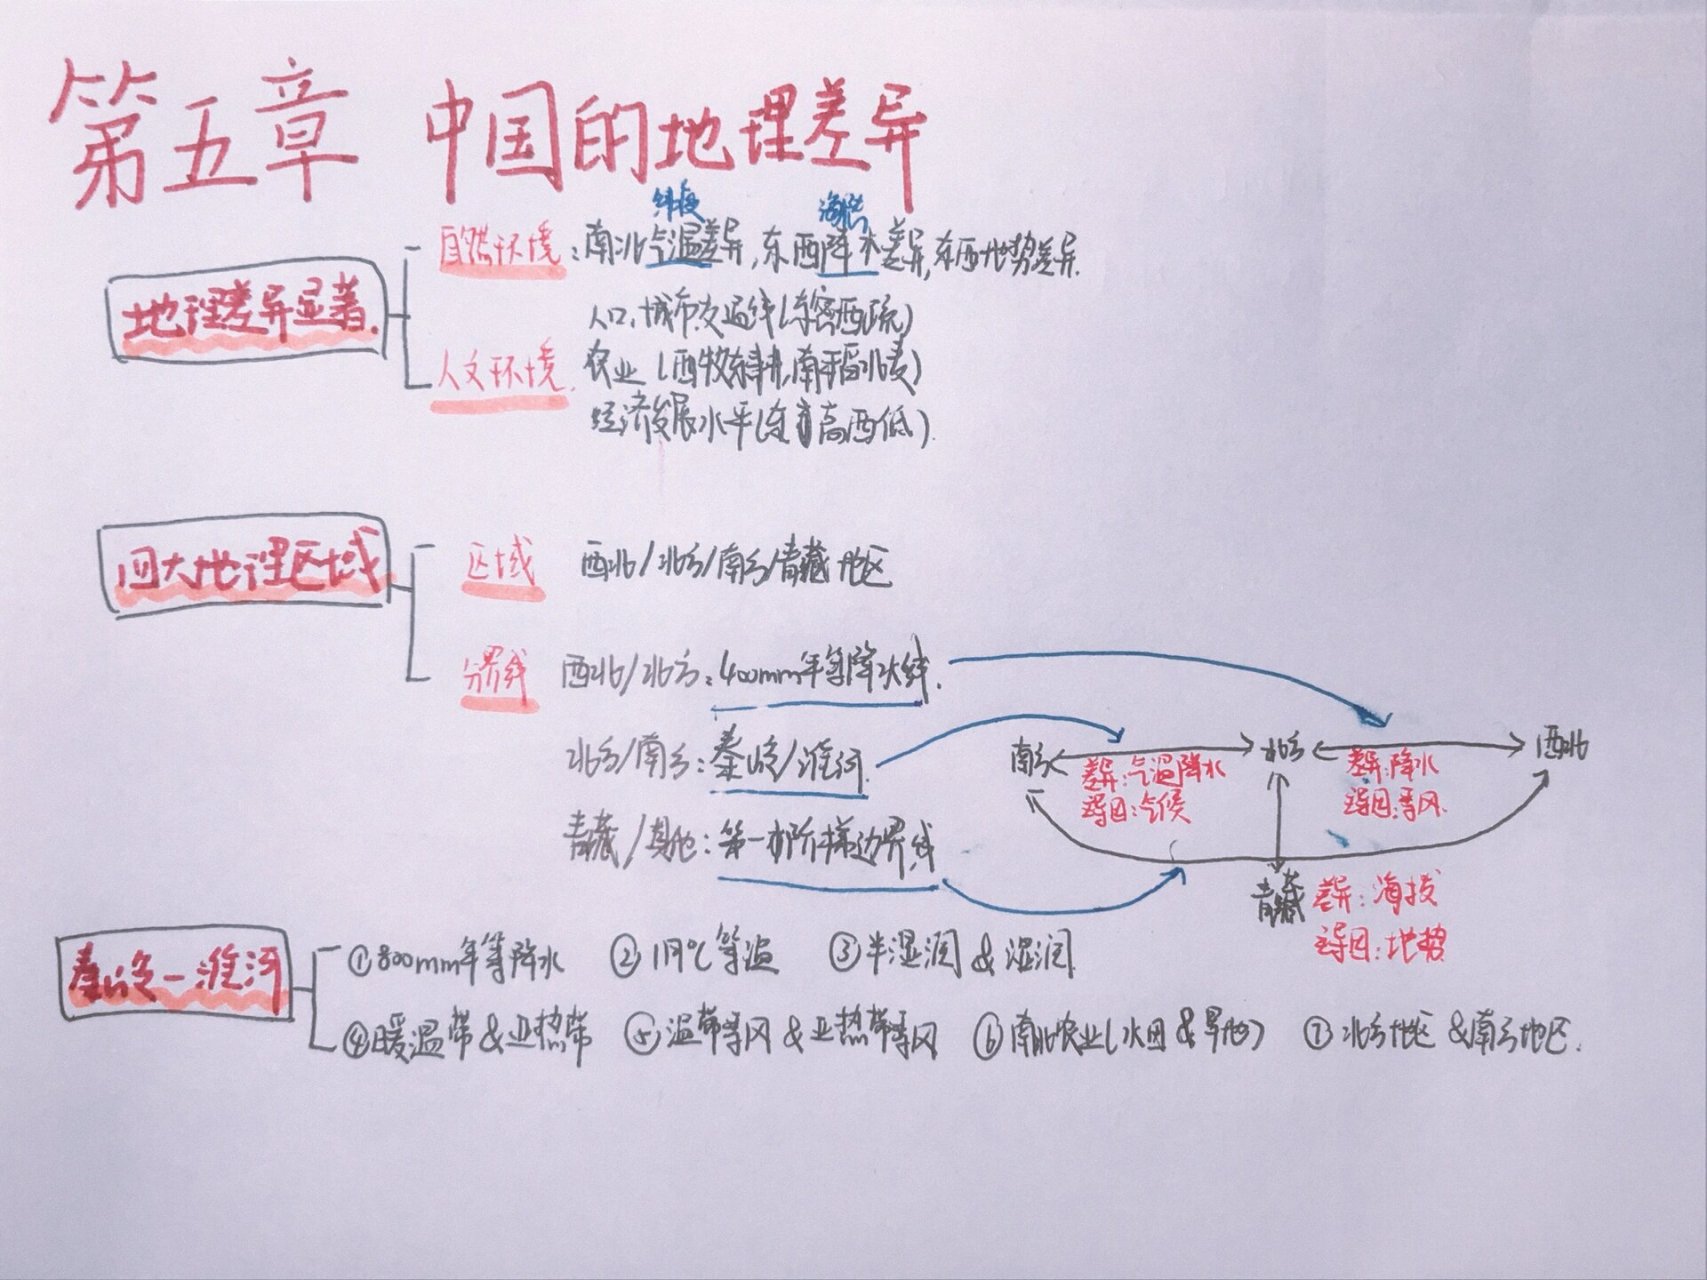 第五章 中国的地理差异
纬度 海陆
自然环境：南北气温差异，东西降水差异，东西地势差异.
地理差异显著.
人口、城市、交通线（东密西疏）
人文环境. 农业（西牧东耕，南稻北麦）
经济发展水平（东高西低）.
四大地理区域
区域 西北/北方/南方/青藏地区
分界线 西北/北方：400mm年等降水线.
北方/南方：秦岭/淮河.
南方 北方 西北
差异：气温降水
导因：气候
差异：降水
导因：季风.
青藏/其他：第一阶梯边界线
青藏 差异：海拔
导因：地势
秦岭－淮河
①800mm年等降水 ②1月0℃等温 ③半湿润&湿润.
④暖温带&亚热带 ⑤温带季风&亚热带季风 ⑥南北农业（水田&旱地） ⑦北方地区&南方地区.